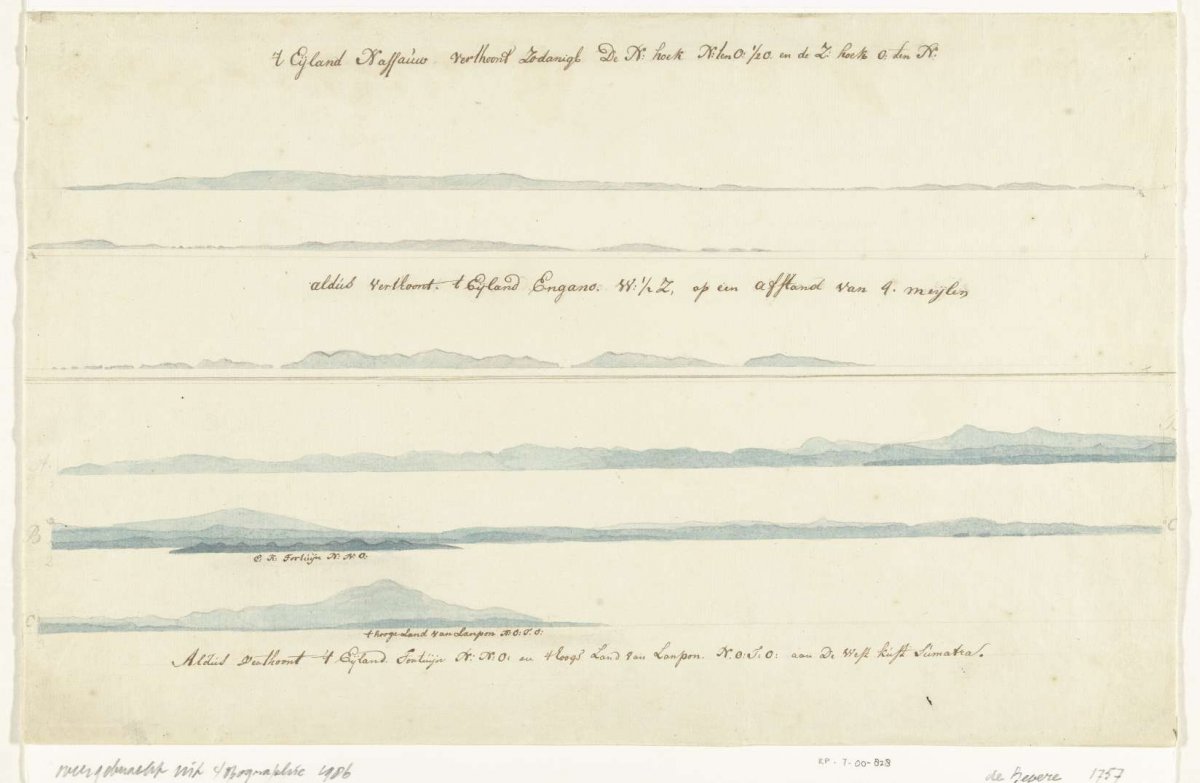 't Eyland Nassauw vertoont Zodanigh De N: hoek N: ten O: ½ O. en de Z: hoek O. ten N:
aldus vertoont. 't Eyland Engano. W: ½ Z, op een afstand van 4. meijlen
A.
B.
B
C
E. K. Fortuijn N: N: O:
C
't hooge Land van Lanpon N O: T: O:
Aldus Vertoont 't Eyland Fortuijn N: N: O: en 't loogs Land van Lanpon. N: O: T: O: aan De West kust Sumatra.
overgebracht uit topographie 1986
RP-T-00-828
de Bevere 1757